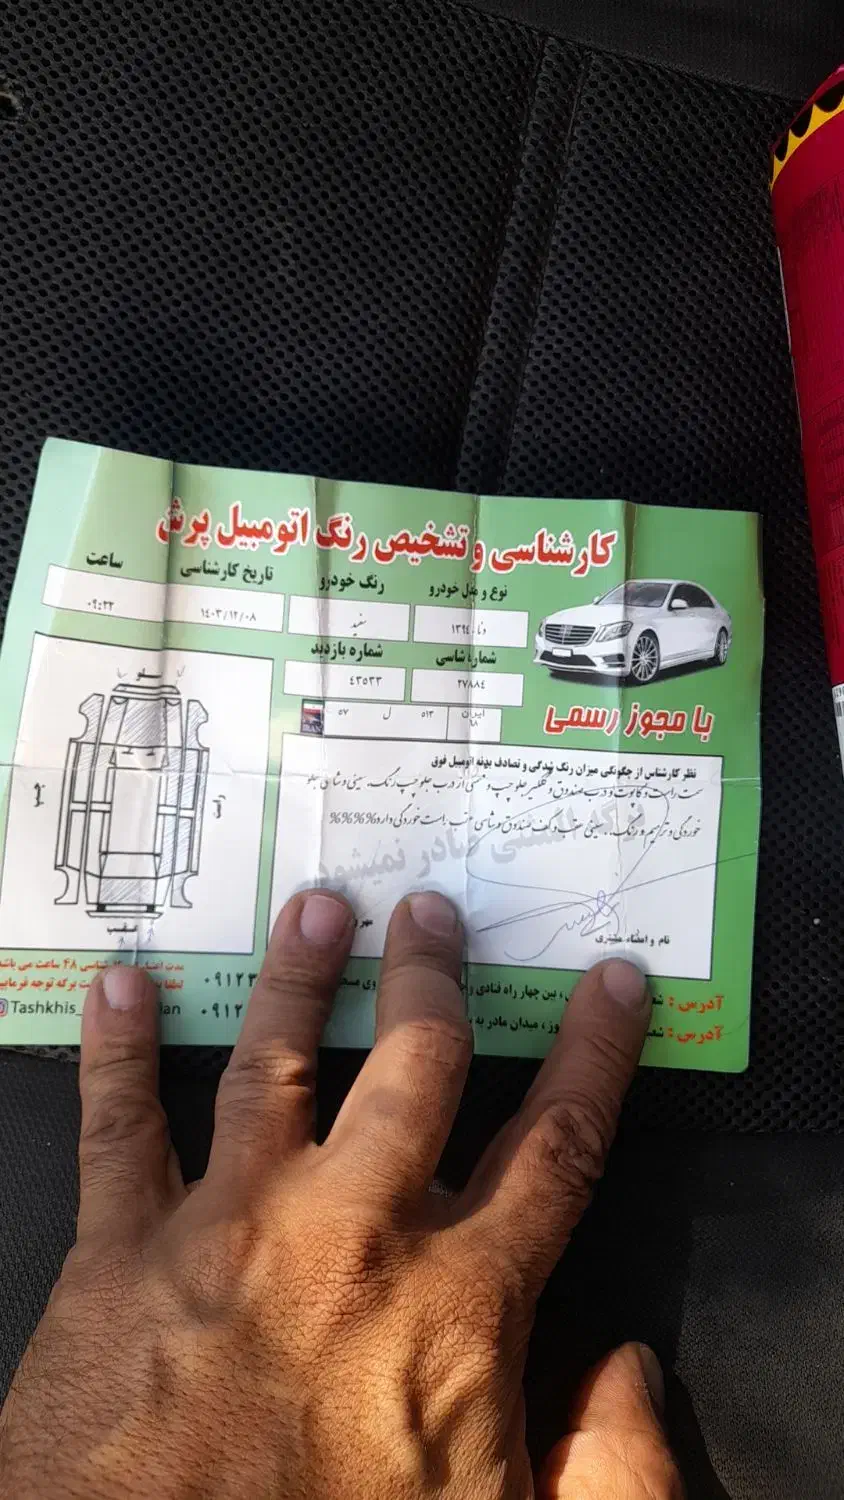 کارشناسی و تشخیص رنگ اتومبیل پرش
نوع و مدل خودرو
رنگ خودرو
تاریخ کارشناسی
ساعت
دنا ۱۳۹۴
سفید
۱۴۰۳/۱۲/۰۸
۰۹:۲۲
شماره شاسی
شماره بازدید
۲۷۸۸۴
۴۳۵۳۳
ایران ۶۸
۵۱۳
ل
۵۷
با مجوز رسمی
جلو
چپ
راست
عقب
نظر کارشناس از چگونگی میزان رنگ شدگی و تصادف بدنه اتومبیل فوق
ست راست و کاپوت و درب صندوق و گلگیر جلو چپ و قسمتی از درب جلو چپ رنگ. سینی و شاسی جلو
خوردگی و ترمیم و رنگ.. سینی عقب و کف صندوق و شاسی عقب راست خوردگی دارد%%%%
برگه المثنی صادر نمیشود
نام و امضاء مشتری
مهر
مدت اعتبار کارشناسی ۴۸ ساعت می باشد
لطفا برگه توجه فرمایید
Tashkhis_
۰۹۱۲۳
۰۹۱۲
آدرس : شعبه
، بین چهار راه قنادی و
آدرس : شعبه
، میدان مادر به